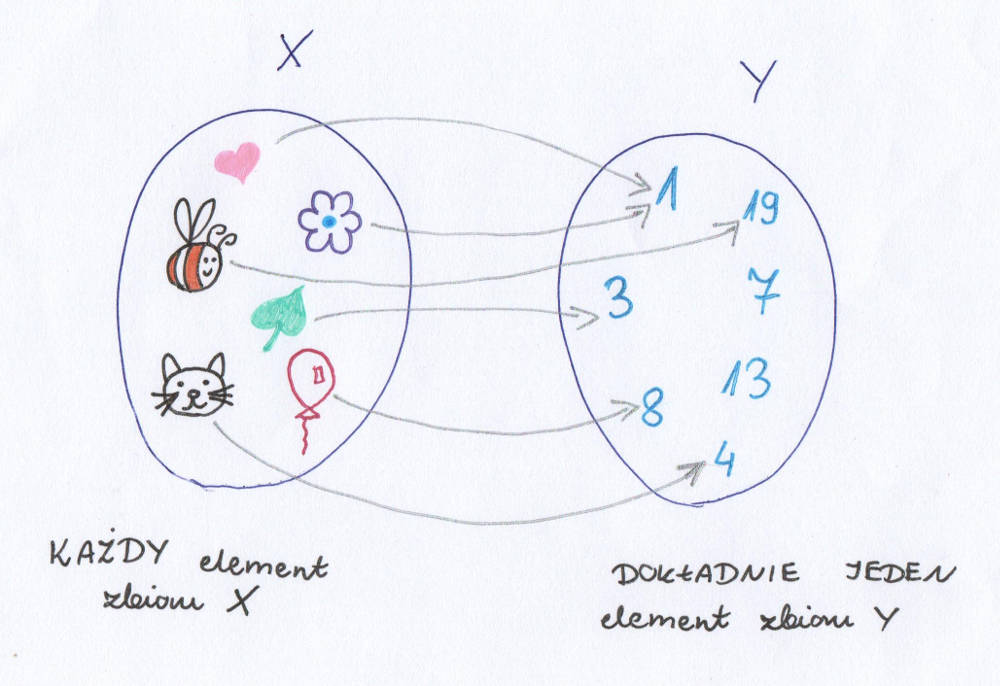 X
Y
1
19
3
7
13
8
4
KAŻDY element
zbioru X
DOKŁADNIE JEDEN
element zbioru Y